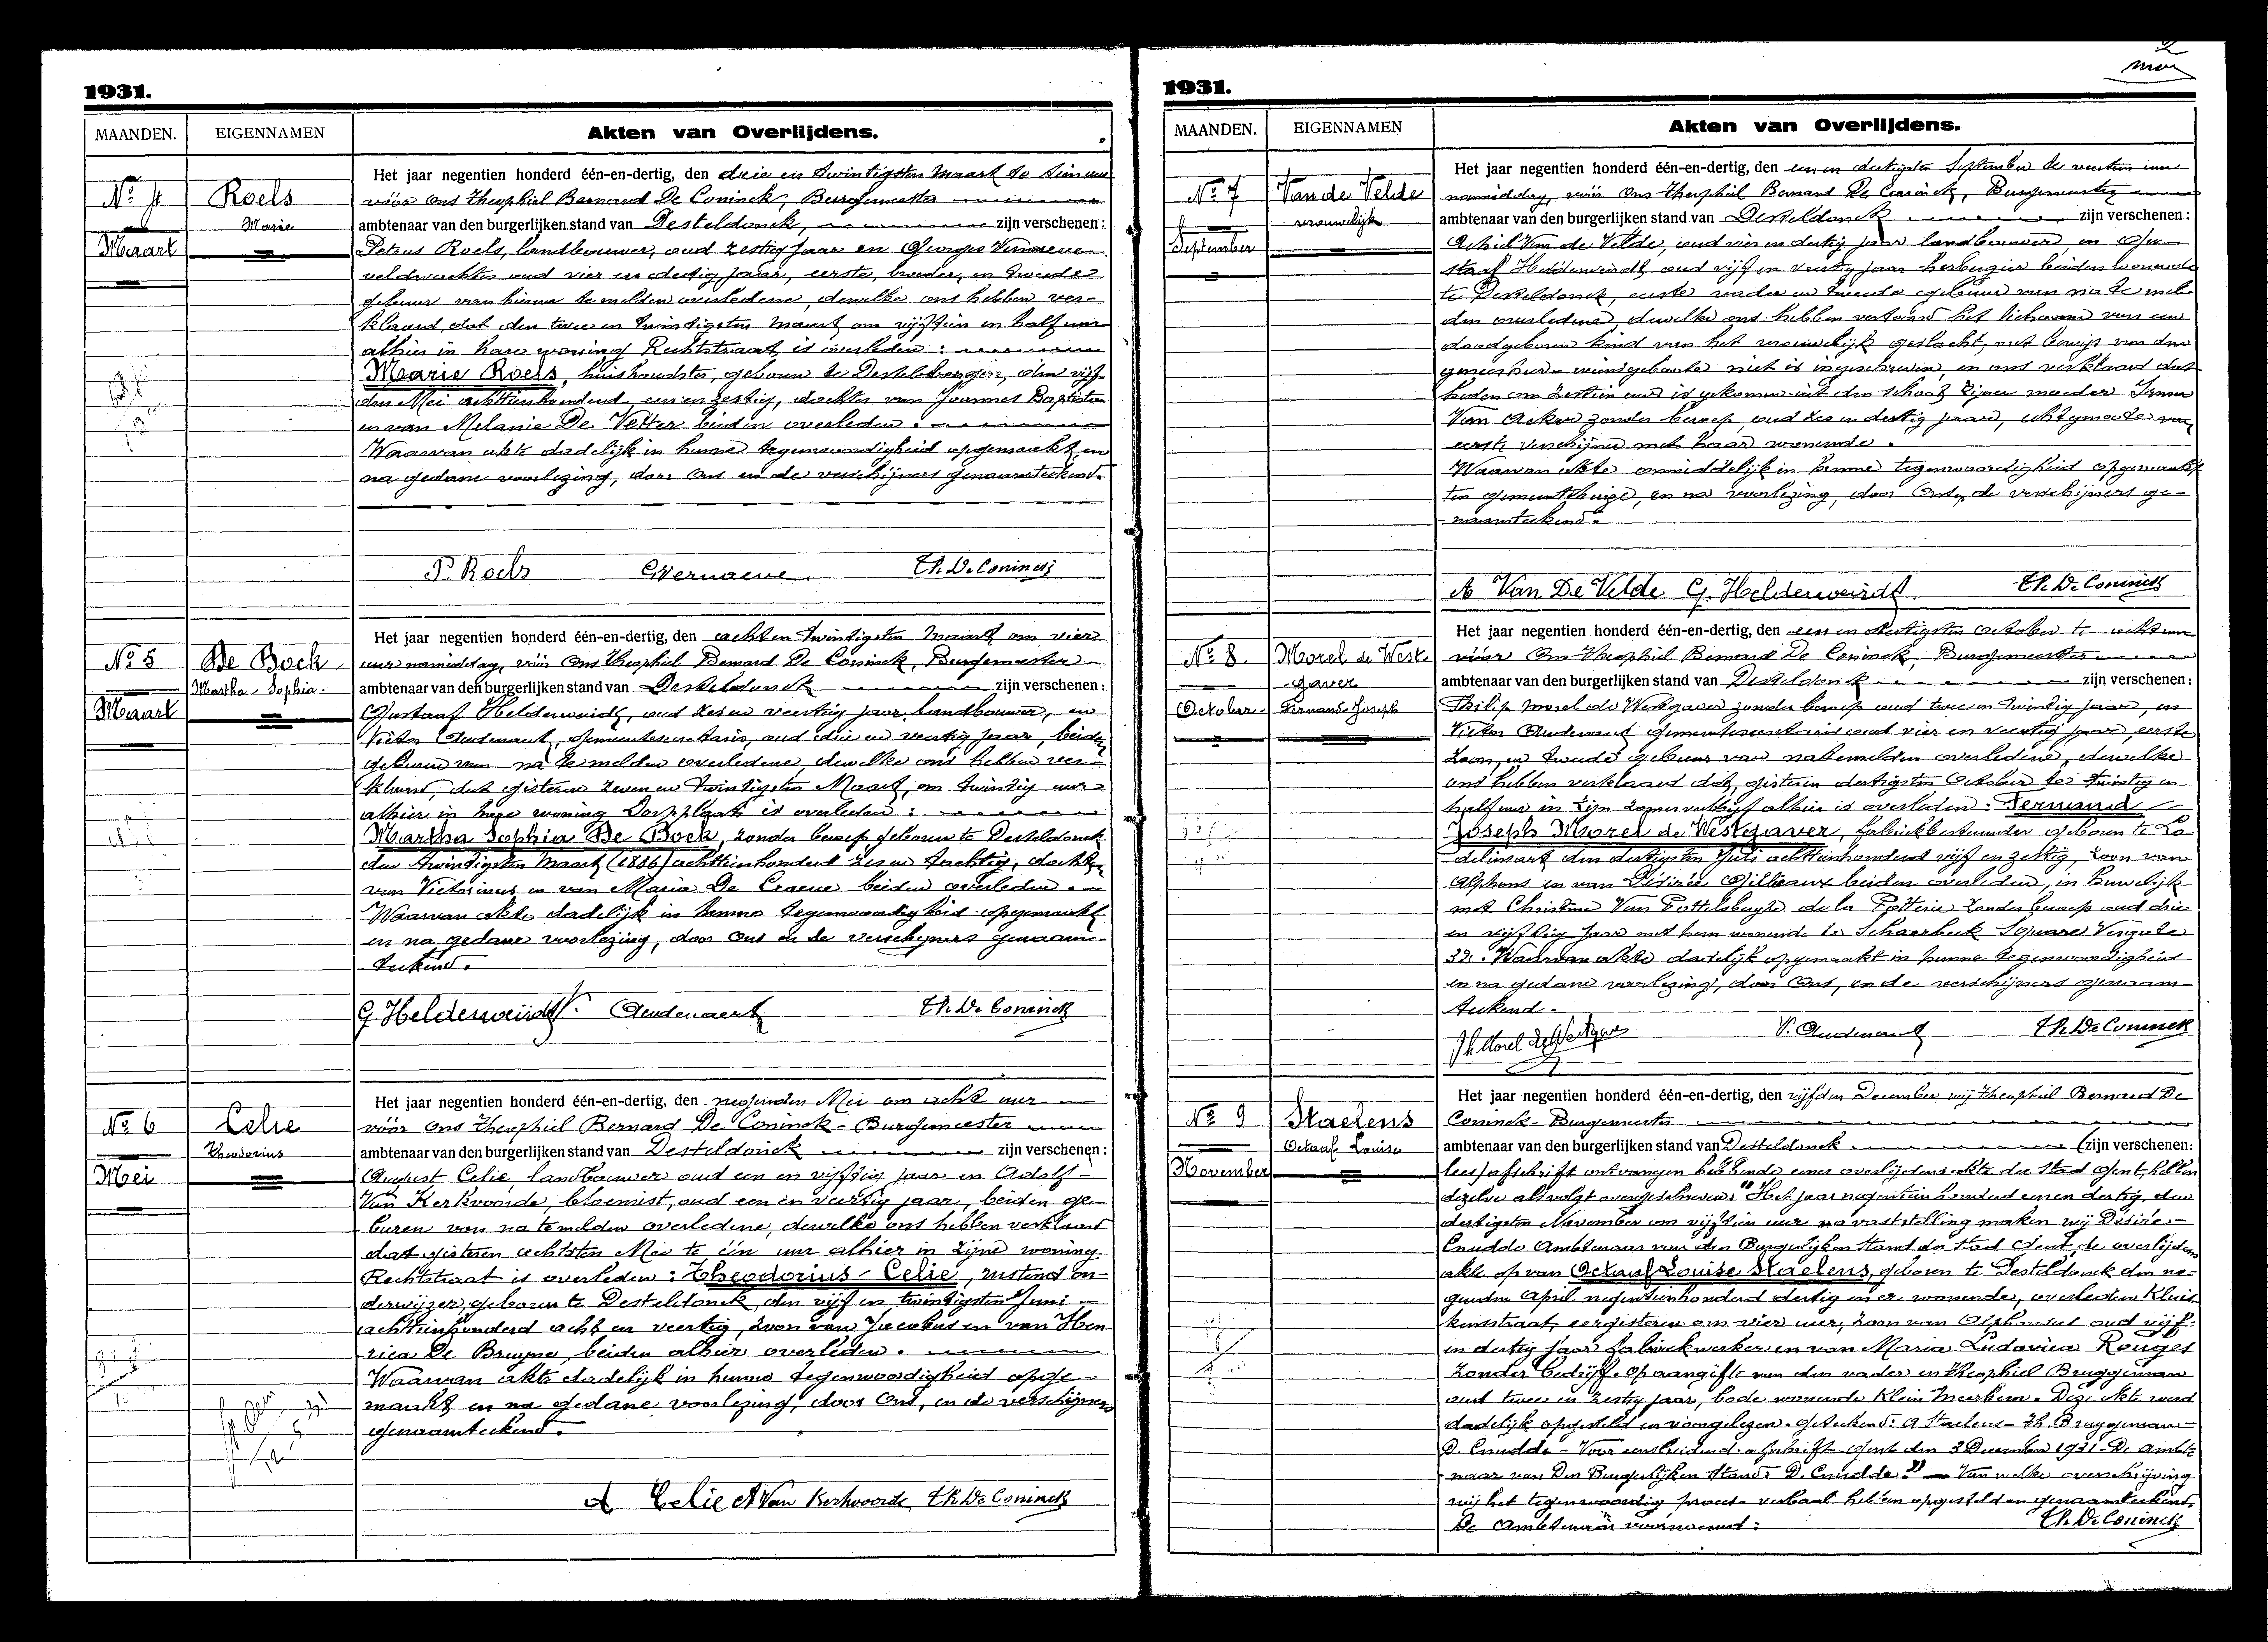 1931.
MAANDEN. EIGENNAMEN Akten van Overlijdens.
Nº 4
Maart
Roels
Marie
Het jaar negentien honderd één-en-dertig, den drie en twintigsten Maart te tien uur
vóór ons Theophiel Bernard De Coninck, Burgemeester
ambtenaar van den burgerlijken stand van Desteldonck, zijn verschenen:
Petrus Roels, landbouwer, oud zestig jaar en Georges Vernaeve
veldwachter oud vier en dertig jaar, eerste, broeder, en tweede
gebuur van hierna te melden overledene, dewelke ons hebben ver-
klaard, dat den twee en twintigsten Maart om vijftien en half uur
alhier in hare woning Rechtstraat, is overleden:
Marie Roels, huishoudster, geboren te Destelbergen, den vijf-
den Mei achttienhonderd een en zestig, dochter van Joannes Baptiste
en van Melanie De Vetter beiden overleden.
Waarvan akte dadelijk in hunne tegenwoordigheid opgemaakt, en
na gedane voorlezing, door Ons en de verschijners genaamteekend.
P. Roels GVernaeve Th. De Coninck
Nº 5
Maart
De Bock
Martha Sophia.
Het jaar negentien honderd één-en-dertig, den acht en twintigsten Maart om vier
uur namiddag, vóór Ons Theophiel Bernard De Coninck, Burgemeester
ambtenaar van den burgerlijken stand van Desteldonck zijn verschenen:
Gustaaf Helderweirdt, oud zes en veertig jaar, landbouwer, en
Victor Audenaert, gemeentesecretaris, oud drie en veertig jaar, beiden
geburen van na te melden overledene, dewelke ons hebben ver-
klaard, dat gisteren zeven en twintigsten Maart, om twintig uur
alhier in hare woning Dorpplaats is overleden:
Martha Sophia De Bock, zonder beroep geboren te Desteldonck
den twintigsten Maart (1886) achttienhonderd zes en tachtig, dochter
van Victorinus en van Maria De Craene beiden overleden
Waarvan akte dadelijk in hunne tegenwoordigheid opgemaakt
en na gedane voorlezing, door Ons en de verschijners genaam-
teekend.
G. Helderweirdt V. Audenaert Th. De Coninck
Nº 6
Mei
Celie
Theodorius
Het jaar negentien honderd één-en-dertig, den negenden Mei om acht uur
vóór Ons Theophiel Bernard De Coninck - Burgemeester
ambtenaar van den burgerlijken stand van Desteldonck zijn verschenen:
August Celie, landbouwer oud een en vijftig jaar en Adolf
Van Kerkvoorde, bloemist, oud een en veertig jaar, beiden ge-
buren van na te melden overledene, dewelke ons hebben verklaard
dat gisteren achtsten Mei te één uur alhier in zijne woning
Rechtstraat is overleden: Theodorius Celie, rustend on-
derwijzer, geboren te Desteldonck, den vijf en twintigsten Juni
achttienhonderd acht en veertig, zoon van Jacobus en van Hen
rica De Bruyne, beiden alhier overleden.
Waarvan akte dadelijk in hunne tegenwoordigheid opge-
maakt en na gedane voorlezing, door Ons, en de verschijners
genaamteekend.
A Celie A Van Kerkvoorde Th. De Coninck
1931.
MAANDEN. EIGENNAMEN Akten van Overlijdens.
Nº 7
September
Van de Velde
vrouwelijk
Het jaar negentien honderd één-en-dertig, den een en dertigsten September te zeventien uur
namiddag, vóór Ons Theophiel Bernard De Coninck, Burgemeester
ambtenaar van den burgerlijken stand van Desteldonck zijn verschenen:
Achiel Van de Velde, oud vier en dertig jaar landbouwer, en Gu-
staaf Helderweirdt, oud vijf en veertig jaar herbergier beiden wonende
te Desteldonck, eerste vader en tweede gebuur van na te mel-
den overledene, dewelke ons hebben vertoond het lichaam van een
doodgeboren kind van het vrouwelijk geslacht, met bewijs van den
geneesheer, wiens geboorte niet is ingeschreven, en ons verklaard dat
heden om zestien uur is gekomen uit den schoot zijner moeder Irma
Van Acker zonder beroep, oud zes en dertig jaar, echtgenoote van
eerste verschijner met haar wonende.
Waarvan akte onmiddelijk in hunne tegenwoordigheid opgemaakt
ten gemeentehuize, en na voorlezing, door Ons, de verschijners ge-
naamteekend.
A Van De Velde G. Helderweirdt. Th. De Coninck
Nº 8.
October
Morel de West-
gaver
Fernand Joseph
Het jaar negentien honderd één-en-dertig, den een en dertigsten October te acht uur
vóór Ons Theophiel Bernard De Coninck, Burgemeester
ambtenaar van den burgerlijken stand van Desteldonck zijn verschenen:
Philip Morel de Westgaver zonder beroep oud twee en twintig jaar, en
Victor Audenaert gemeentesecretaris oud vier en veertig jaar, eerste
zoon, en tweede gebuur van natemelden overledene, dewelke
ons hebben verklaard dat, gisteren dertigsten October te twintig en
half uur in zijn zomerverblijf alhier is overleden: Fernand
Joseph Morel de Westgaver, fabriekbestuurder geboren te Lo-
delinsart den dertigsten Juli achttienhonderd vijf en zestig, zoon van
Alphons en van Désirée Gillieaux beiden overleden, in huwelijk
met Christine Van Pottelsberghe de la Potterie zonder beroep oud drie
en vijftig jaar met hem wonende te Schaerbeek Square Vergote
32. Waarvan akte dadelijk opgemaakt in hunne tegenwoordigheid
en na gedane voorlezing, door Ons, en de verschijners genaam-
teekend.
Ph Morel de Westgaver V. Audenaert Th. De Coninck
Nº 9
November
Staelens
Octaaf Louise
Het jaar negentien honderd één-en-dertig, den vijfden December wij Theophiel Bernard De
Coninck - Burgemeester
ambtenaar van den burgerlijken stand van Desteldonck (zijn verschenen:
lees) afschrift ontvangen hebbende eener overlijdensakte der Stad Gent, hebben
dezelve als volgt overgeschreven: "Het jaar negentien honderd een en dertig, den
dertigsten November om vijftien uur na vaststelling maken wij Désiré
Cnudde Ambtenaar van den Burgerlijken Stand der stad Gent, de overlijdens
akte op van Octaaf Louise Staelens, geboren te Desteldonck den ne-
genden April negentienhonderd dertig en er wonende, overleden Kluis
kensstraat, eergisteren om vier uur, zoon van Alphonsus oud vijf-
en dertig jaar fabriekwerker en van Maria Ludovica Rouges
zonder bedrijf. Op aangifte van den vader en Theophiel Bruggeman
oud twee en zestig jaar, bode wonende Klein Meerhem. Deze akte werd
dadelijk opgesteld en voorgelezen. Geteekend: A Staelens - Th. Bruggeman -
D. Cnudde - Voor eensluidend afschrift Gent den 3 December 1931 - De ambte
naar van Den Burgerlijken Stand: D. Cnudde" - Van welke overschrijving
wij het tegenwoordig proces-verbaal hebben opgesteld en genaamteekend.
De Ambtenaar voornoemd: Th. De Coninck